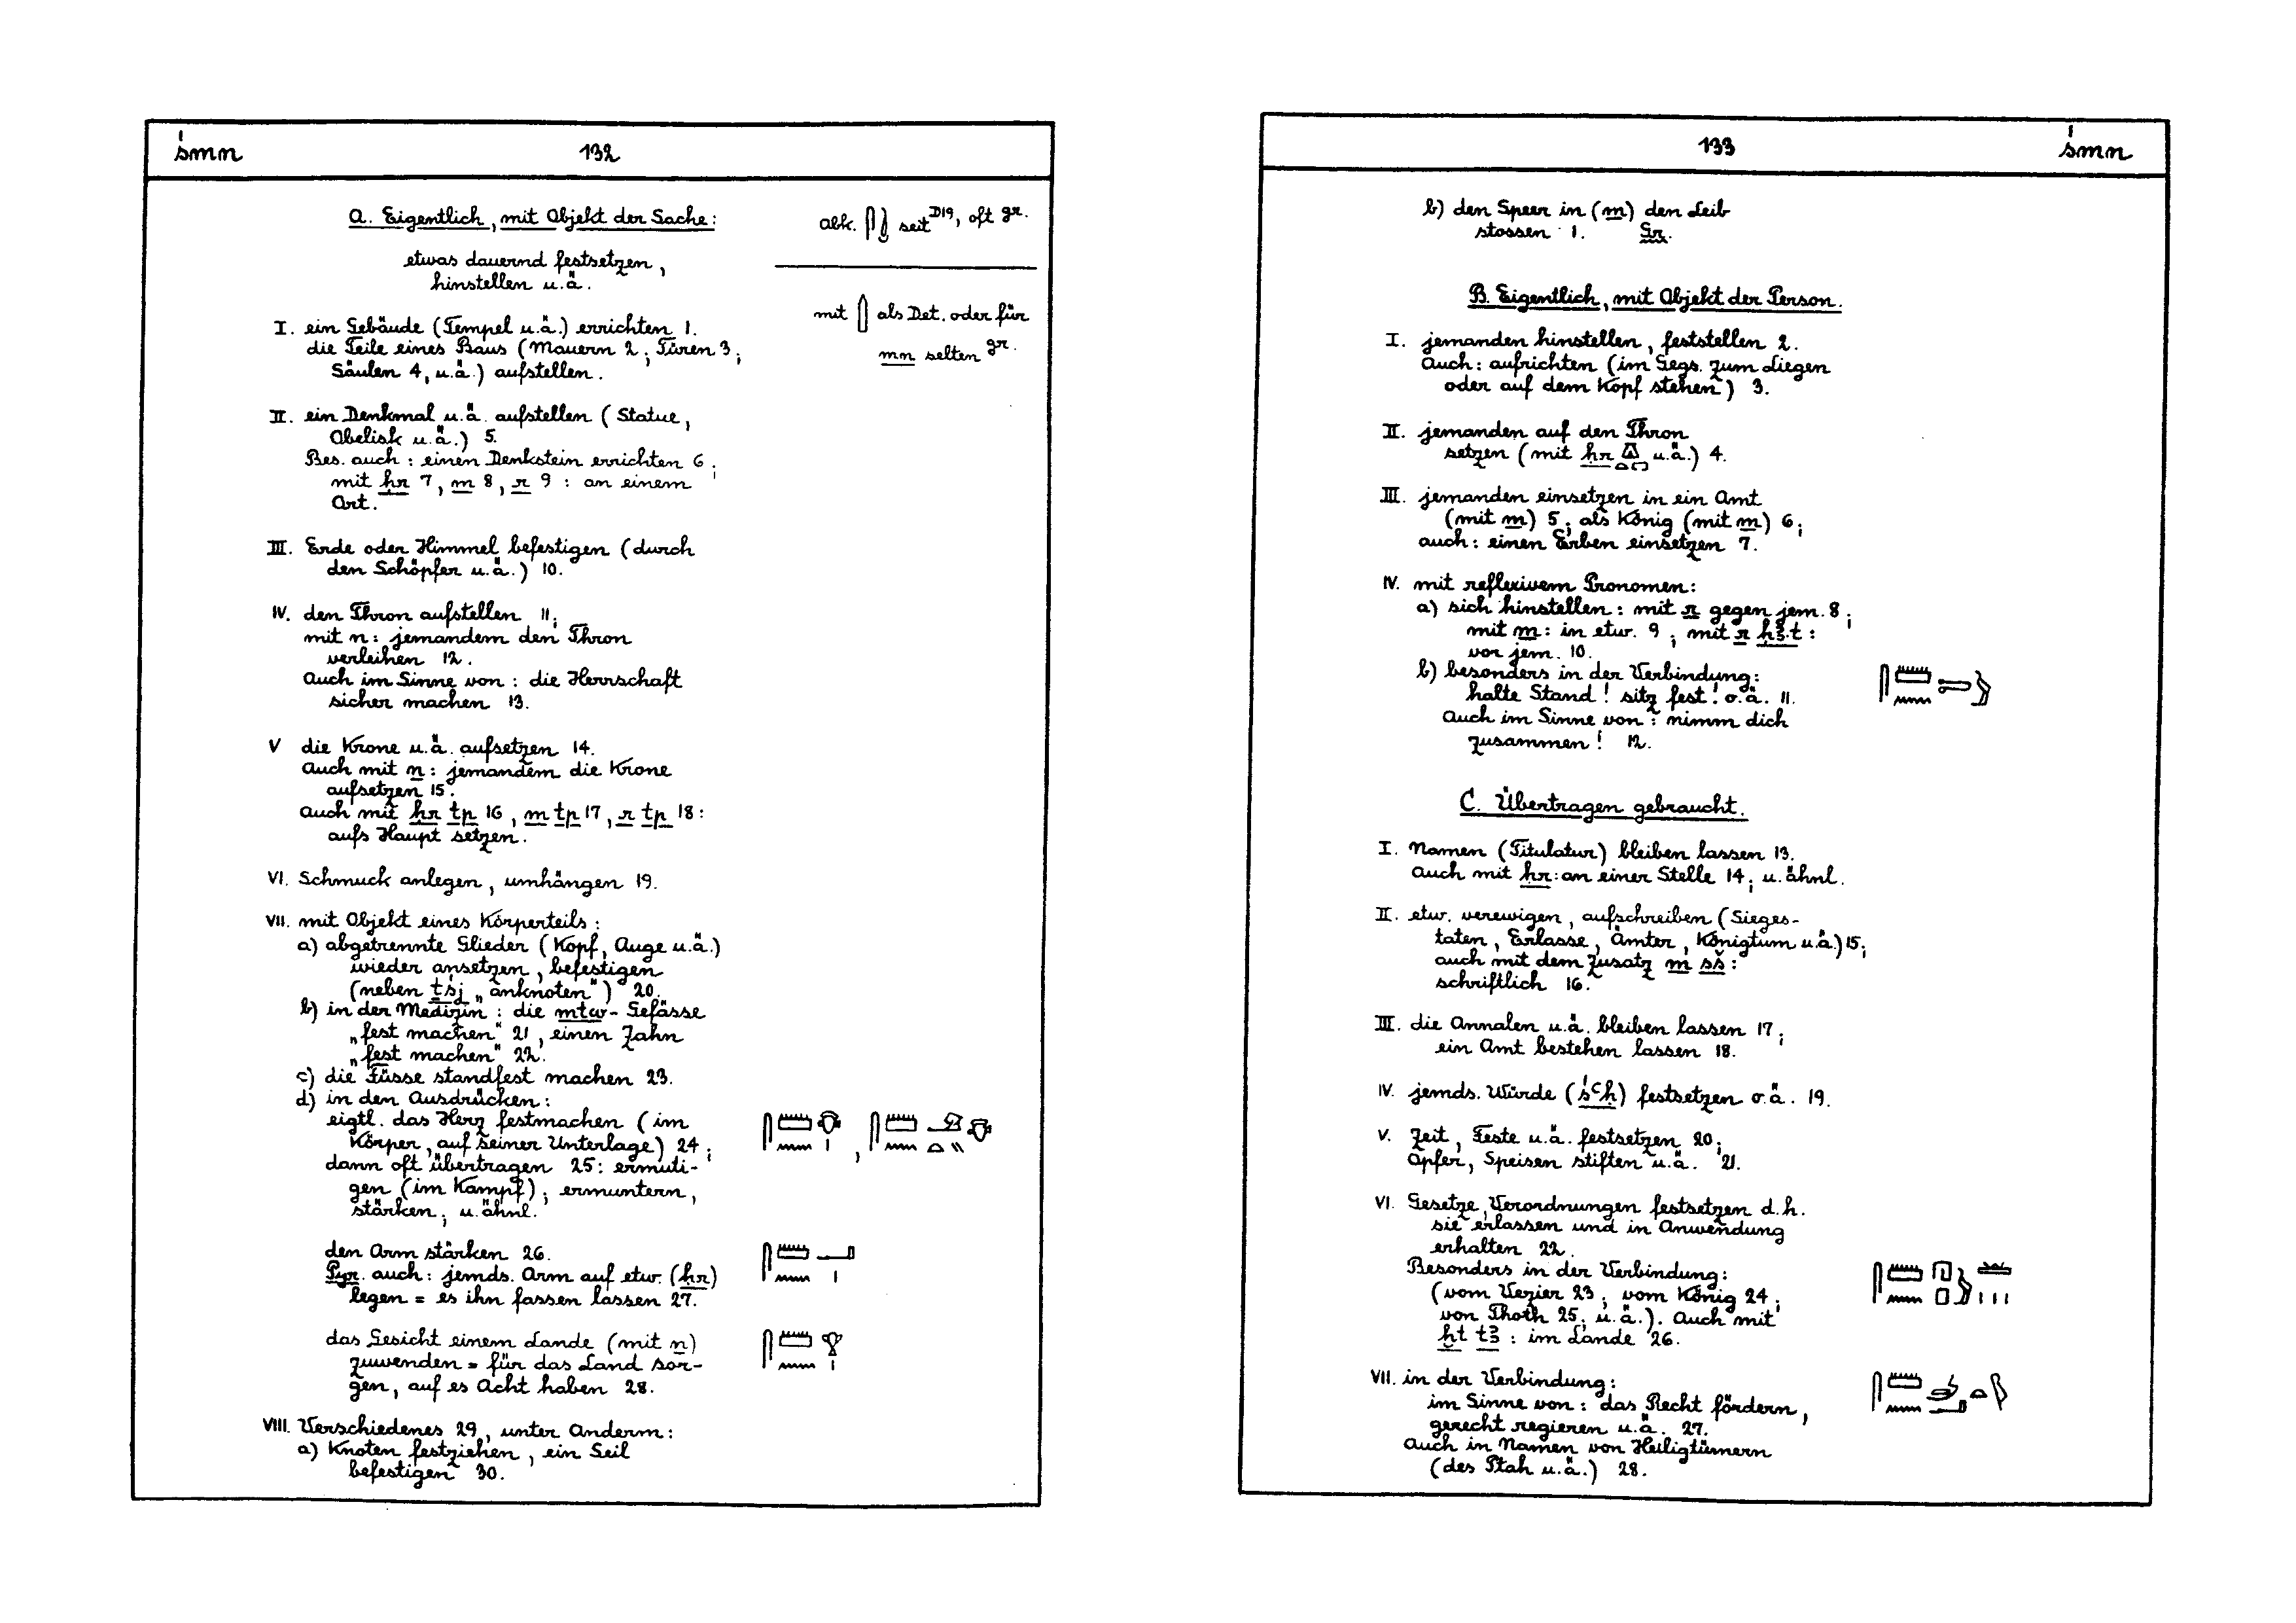 śmn 132
A. Eigentlich, mit Objekt der Sache:
etwas dauernd festsetzen,
hinstellen u.ä.
I. ein Gebäude (Tempel u.ä.) errichten 1.
die Teile eines Baus (Mauern 2; Türen 3;
Säulen 4, u.ä.) aufstellen.
II. ein Denkmal u.ä. aufstellen (Statue,
Obelisk u.ä.) 5.
Bes. auch: einen Denkstein errichten 6;
mit ḥr 7, m 8, r 9: an einem
Ort.
III. Erde oder Himmel befestigen (durch
den Schöpfer u.ä.) 10.
IV. den Thron aufstellen 11;
mit n: jemandem den Thron
verleihen 12.
Auch im Sinne von: die Herrschaft
sicher machen 13.
V die Krone u.ä. aufsetzen 14.
Auch mit n: jemandem die Krone
aufsetzen 15.
auch mit ḥr tp 16, m tp 17, r tp 18:
aufs Haupt setzen.
VI. Schmuck anlegen, umhängen 19.
VII. mit Objekt eines Körperteils:
a) abgetrennte Glieder (Kopf, Auge u.ä.)
wieder ansetzen, befestigen
(neben ṯśj „anknoten") 20.
b) in der Medizin: die mtw-Gefässe
„fest machen" 21, einen Zahn
„fest machen" 22.
c) die Füsse standfest machen 23.
d) in den Ausdrücken:
eigtl. das Herz festmachen (im
Körper, auf seiner Unterlage) 24;
dann oft übertragen 25: ermuti-
gen (im Kampf); ermuntern,
stärken; u. ähnl.
den Arm stärken 26.
Pyr. auch: jemds. Arm auf etw. (ḥr)
legen = es ihn fassen lassen 27.
das Gesicht einem Lande (mit n)
zuwenden = für das Land sor-
gen, auf es Acht haben 28.
VIII. Verschiedenes 29, unter Anderm:
a) Knoten festziehen, ein Seil
befestigen 30.
abk. 𓋴𓏠 seit D19, oft gr.
mit als Det. oder für
mn selten gr.
133 śmn
b) den Speer in (m) den Leib
stossen 1. Gr.
B. Eigentlich, mit Objekt der Person.
I. jemanden hinstellen, feststellen 2.
Auch: aufrichten (im Gegs. zum Liegen
oder auf dem Kopf stehen) 3.
II. jemanden auf den Thron
setzen (mit ḥr u.ä.) 4.
III. jemanden einsetzen in ein Amt
(mit m) 5; als König (mit m) 6;
auch: einen Erben einsetzen 7.
IV. mit reflexivem Pronomen:
a) sich hinstellen: mit r gegen jem. 8;
mit m: in etw. 9; mit r ḥꜣ.t:
vor jem. 10.
b) besonders in der Verbindung:
halte Stand! sitz fest! o.ä. 11.
Auch im Sinne von: nimm dich
zusammen! 12.
C. Übertragen gebraucht.
I. Namen (Titulatur) bleiben lassen 13.
Auch mit ḥr: an einer Stelle 14; u. ähnl.
II. etw. verewigen, aufschreiben (Sieges-
taten, Erlasse, Ämter, Königtum u.ä.) 15;
auch mit dem Zusatz m sš:
schriftlich 16.
III. die Annalen u.ä. bleiben lassen 17;
ein Amt bestehen lassen 18.
IV. jemds. Würde (śꜥḥ) festsetzen o.ä. 19.
V. Zeit, Feste u.ä. festsetzen 20;
Opfer, Speisen stiften u.ä. 21.
VI. Gesetze, Verordnungen festsetzen d.h.
sie erlassen und in Anwendung
erhalten 22.
Besonders in der Verbindung:
(vom Vezier 23; vom König 24;
von Thoth 25; u.ä.). Auch mit
ḫt tꜣ: im Lande 26.
VII. in der Verbindung:
im Sinne von: das Recht fördern,
gerecht regieren u.ä. 27.
Auch in Namen von Heiligtümern
(des Ptah u.ä.) 28.